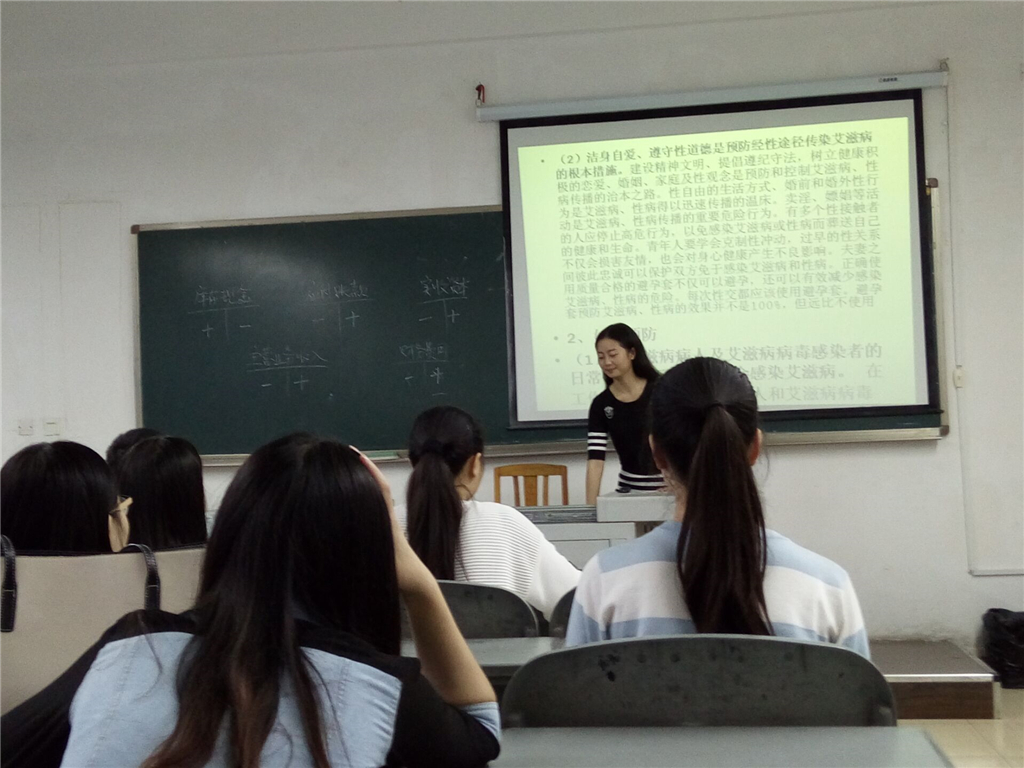 （2）洁身自爱、遵守性道德是预防经性途径传染艾滋病
的根本措施。建设精神文明、提倡遵纪守法，树立健康积
极的恋爱、婚姻、家庭及性观念是预防和控制艾滋病、性
病传播的治本之路。性自由的生活方式、婚前和婚外性行
为是艾滋病、性病得以迅速传播的温床。卖淫、嫖娼等活
动是艾滋病、性病传播的重要危险行为。有多个性接触者
的人应停止高危行为，以免感染艾滋病或性病而葬送自己
的健康和生命。青年人要学会克制性冲动，过早的性关系
不仅会损害友情，也会对身心健康产生不良影响。夫妻之
间彼此忠诚可以保护双方免于感染艾滋病和性病。正确使
用质量合格的避孕套不仅可以避孕，还可以有效减少感染
艾滋病、性病的危险。每次性交都应该使用避孕套。避孕
套预防艾滋病、性病的效果并不是100%，但远比不使用
2、 预防
（1 滋病病人及艾滋病病毒感染者的
日常 会感染艾滋病。 在
工 人和艾滋病病毒
库存现金
+ -
- +
- +
主营业务收入
- +
- +